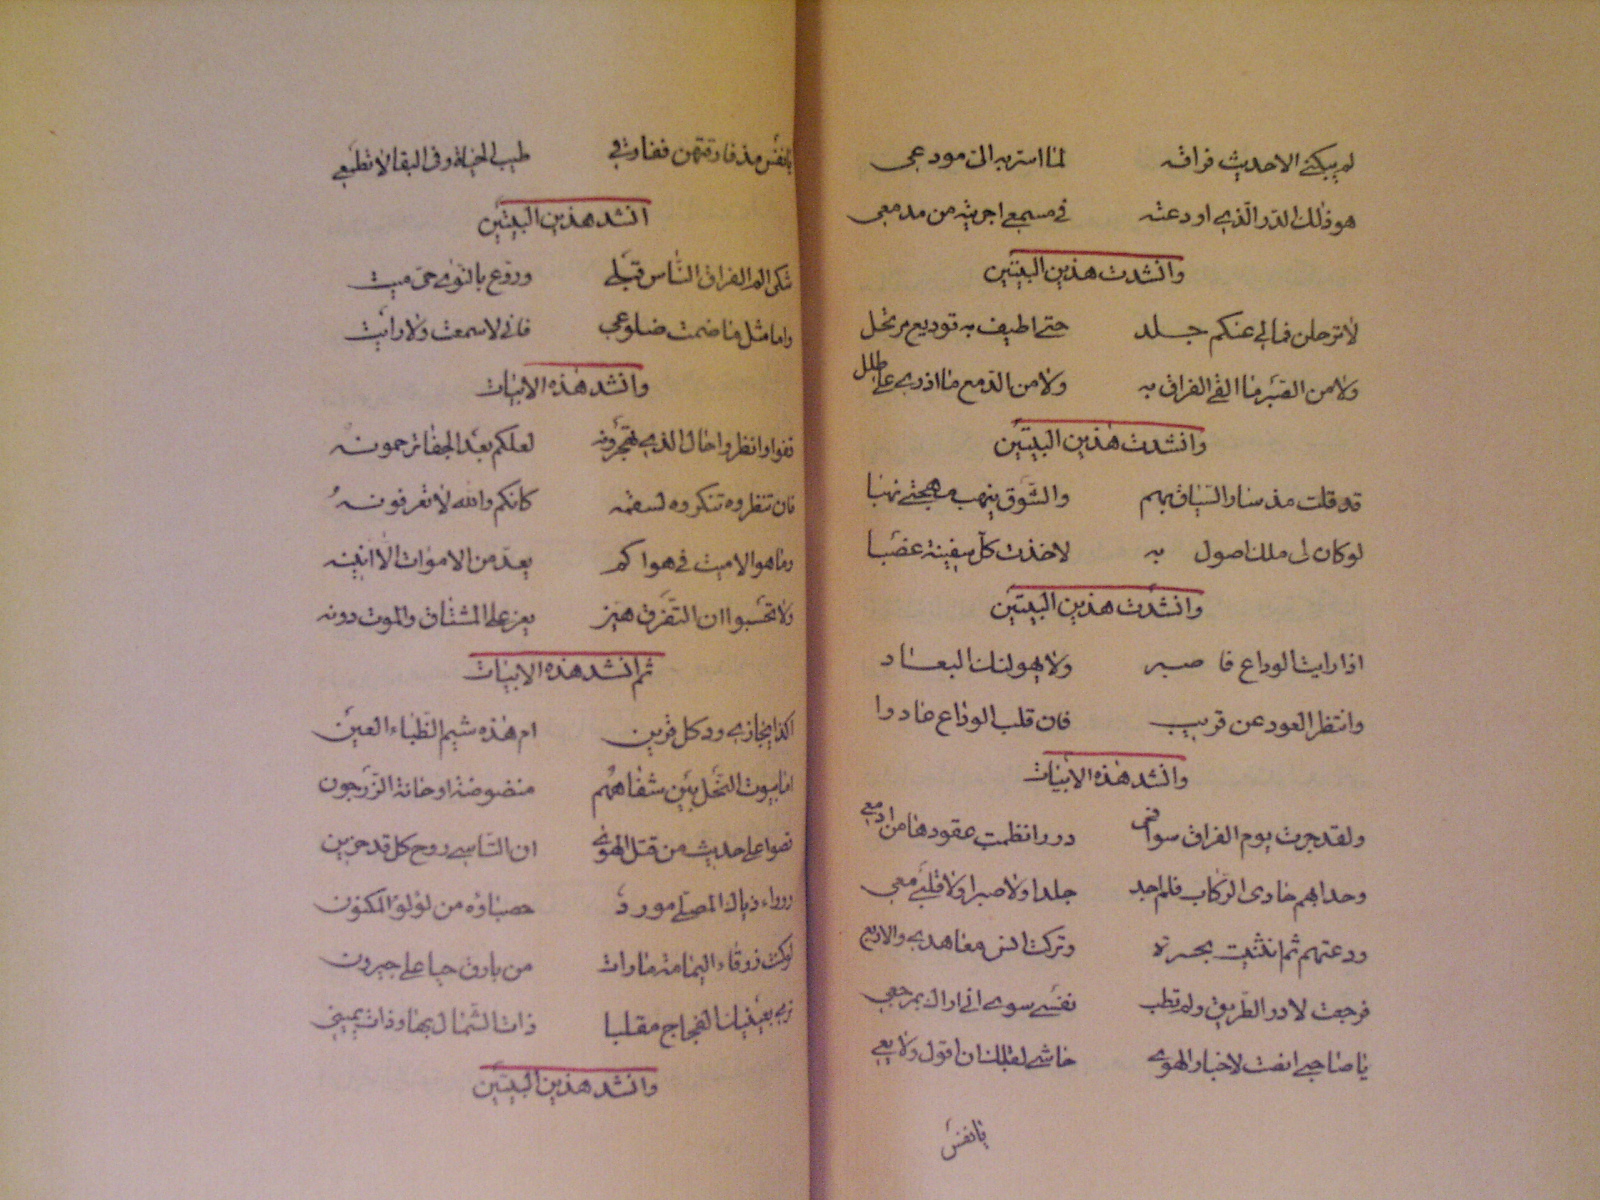 لم يبكني الا حديث فراقه لما اسر به الى مودعي
هو ذلك الدر الذي اودعته في مسمعي اجريته من مدمعي
وانشدت هذين البيتين
لا ترحلن فمالي عنكم جلد حتى اطيف به توديع مرتحل
ولا من الصبر ما القى الفراق به ولا من الدمع ما اذري على طلل
وانشدت هذين البيتين
قد قلت مذ سار السباق بهم والشوق ينهب مهجتي نهبا
لو كان لى ملك اصول به لاخذت كل سفينة غصبا
وانشدت هذين البيتين
اذا رايت الوداع فا صبر ولا يهولنك البعاد
وانتظر العود عن قريب فان قلب الوداع عادوا
وانشد هذه الابيات
ولقد جرت يوم الفراق سوافحى دررا نظمت عقودها من ادمعي
وحدا بهم حادى الركاب فلم اجد جلدا ولا صبرا ولا قلبي معي
ودعتهم ثم انثنيت بحسرة وتركت انس معاهدي والاربع
فرجعت لا ادر الطريق ولم تطب نفسي سوى اني اراك بمرجعي
يا صاحبي انصت لاخبار الهوى حاشى لقلبك ان اقول ولا يعي
يا نفس
يا نفس مذ فارقتهن ففارقي طيب الحياة وفى البقا لا تطمعي
انشد هذين البيتين
شكى الم الفراق الناس قبلي وروع بالنوى حى ميت
واما مثل ما ضمت ضلوعي فاني لا سمعت ولا رايت
وانشد هذه الابيات
قفوا وانظروا حال الذي تهجرونه لعلكم بعد الجفا ترحمونه
فان تنظروه تنكروه لسقمه كانكم والله لا تعرفونه
وما هو الا ميت في هواكم يعد من الاموات الا انينه
ولا تحسبوا ان التفرق هين يعز على المشتاق والموت دونه
ثم انشد هذه الابيات
اكذا يجازي ود كل قرين ام هذه شيم الظباء العين
اما بيوت النحل بين شفاههم منضوضة او حانة الزرجون
قصوا علي حديث من قتل الهوى ان التاسي روح كل قد حزين
روواء ذياك المصلى مورد حصباؤه من لؤلؤ المكنون
لو كنت زرقاء اليمامة ما رات من بارق حيا على جيرون
ترمي بعينيك الفجاج مقلبا ذات الشمال بها وذات يميني
وانشد هذين البيتين